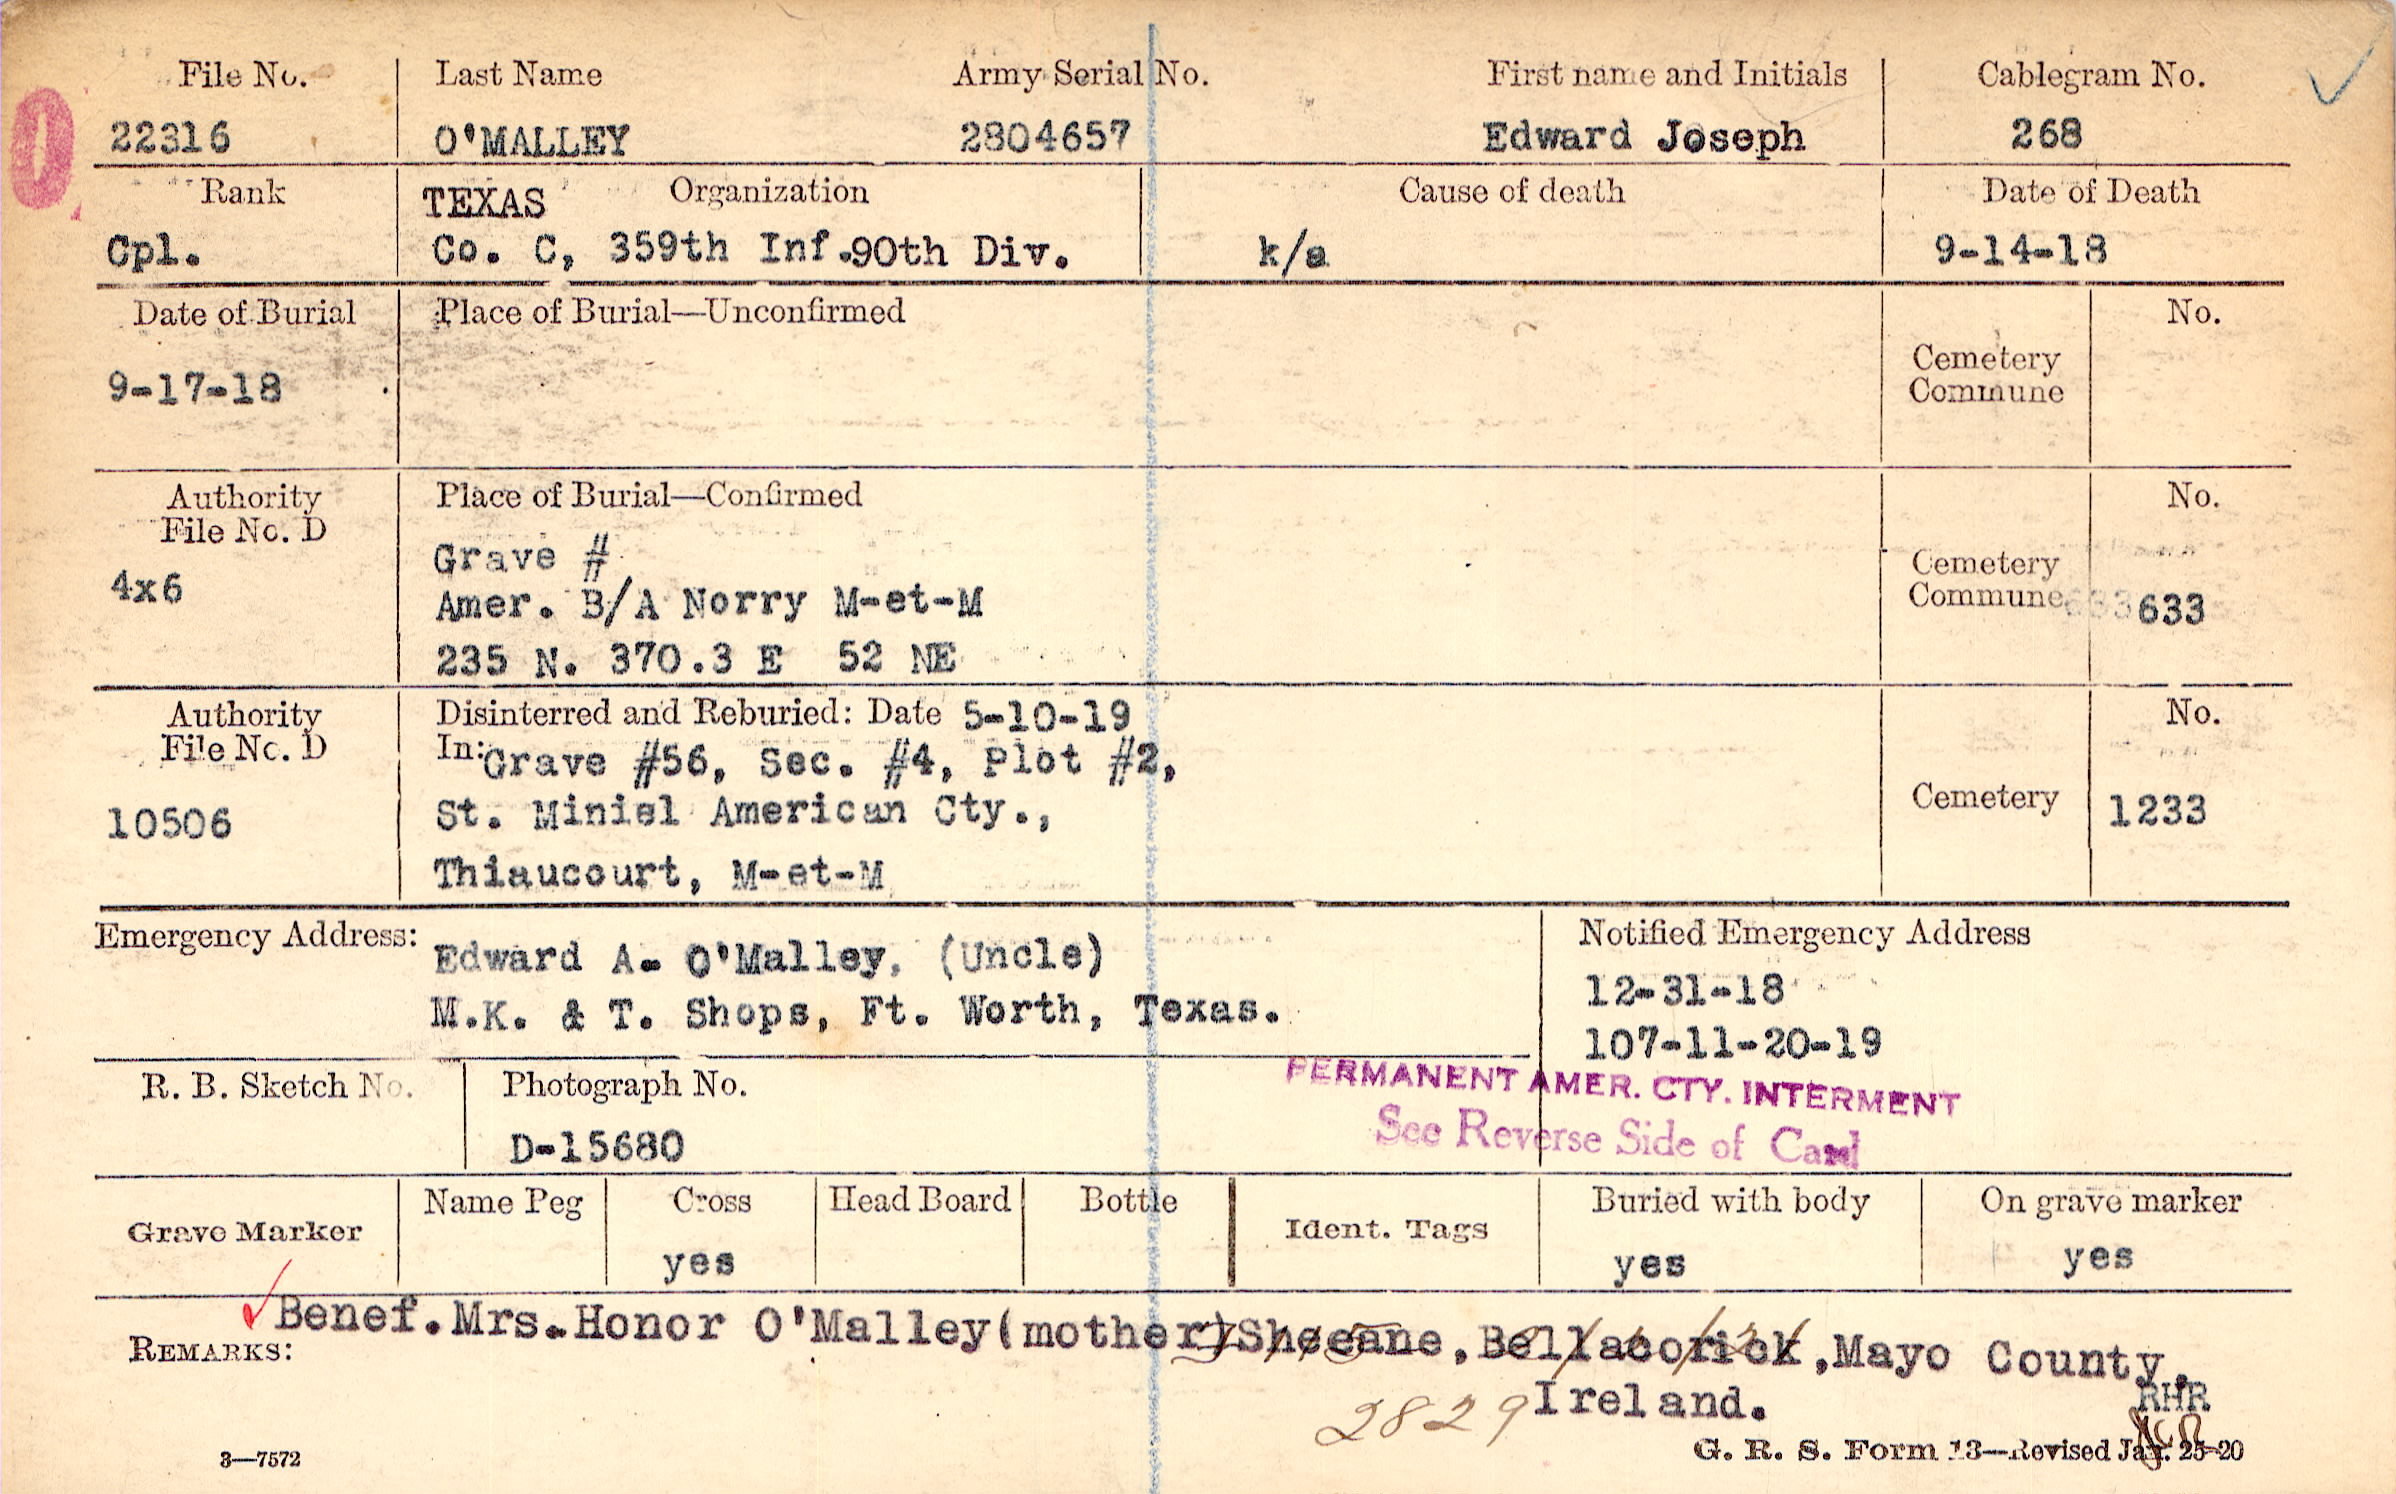 File No. Last Name Army Serial No. First name and Initials Cablegram No.
22316 O'MALLEY 2804657 Edward Joseph 268
Rank TEXAS Organization Cause of death Date of Death
Cpl. Co. C, 359th Inf.90th Div. k/a 9-14-18
Date of Burial Place of Burial—Unconfirmed No.
9-17-18 Cemetery
Commune
Authority Place of Burial—Confirmed No.
File No. D
4x6 Grave # Cemetery
Amer. B/A Norry M-et-M Commune 633
235 N. 370.3 E 52 NE
Authority Disinterred and Reburied: Date 5-10-19 No.
File No. D In: Grave #56, Sec. #4, Plot #2,
10506 St. Miniel American Cty., Cemetery 1233
Thiaucourt, M-et-M
Emergency Address: Edward A. O'Malley, (Uncle) Notified Emergency Address
M.K. & T. Shops, Ft. Worth, Texas. 12-31-18
107-11-20-19
R. B. Sketch No. Photograph No. PERMANENT AMER. CTY. INTERMENT
D-15680 See Reverse Side of Card
Grave Marker Name Peg Cross Head Board Bottle Ident. Tags Buried with body On grave marker
yes yes yes
Benef.Mrs.Honor O'Malley(mother)Sheeane,Bellacorick,Mayo County,
REMARKS:
2829 Ireland. RHR
3—7572 G. R. S. Form 13—Revised Jan. 25-20